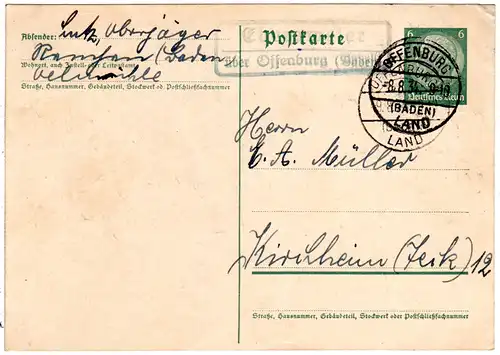 Absender: Lutz, Oberjäger
Renchen (Baden
Wohnort, auch Zustell- oder Leitpostamt
Oelmühle
Straße, Hausnummer, Gebäudeteil, Stockwerk od. Postschließfachnummer
Postkarte
über Offenburg (Baden)
6 6
Deutsches Reich
OFFENBURG
-8.8.34
(BADEN)
LAND
LAND
Herrn
E. A. Müller
Kirchheim (Teck) 12
Straße, Hausnummer, Gebäudeteil, Stockwerk oder Postschließfachnummer